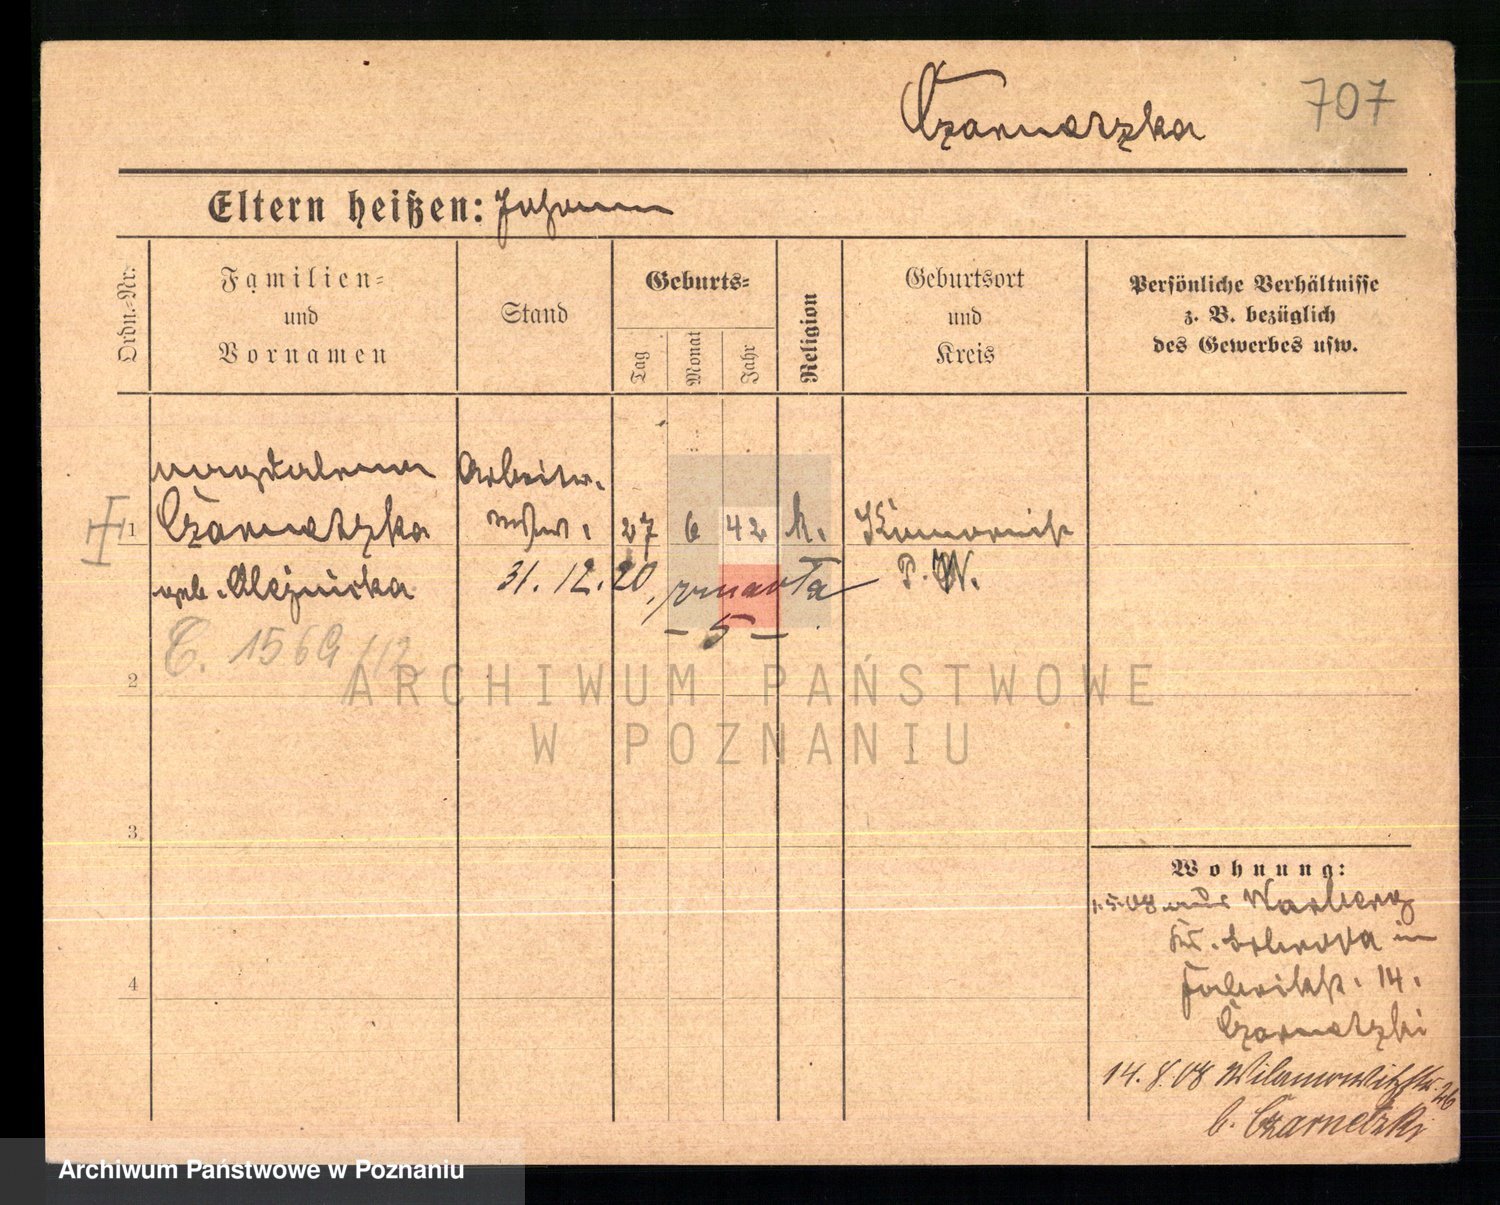 Czarnetzka
707
Eltern heißen: Johann
Ordn.-Nr.
Familien-
und
Vornamen
Stand
Geburts-
Tag
Monat
Jahr
Religion
Geburtsort
und
Kreis
Persönliche Verhältnisse
z. B. bezüglich
des Gewerbes usw.
Magdalena Arbeiter-
1 Czarnetzka wtw. 27 6 42 k.
geb. Olejnicka 31.12.20, zmarła P. W.
- 5 -
C. 1569/12
2
3
4
ARCHIWUM PAŃSTWOWE
W POZNANIU
Wohnung:
1.5.08 aus
in
Fabrikstr. 14.
Czarnetzki
14.8.08 Wilamowitzstr. 26
b. Czarnetzki
Archiwum Państwowe w Poznaniu